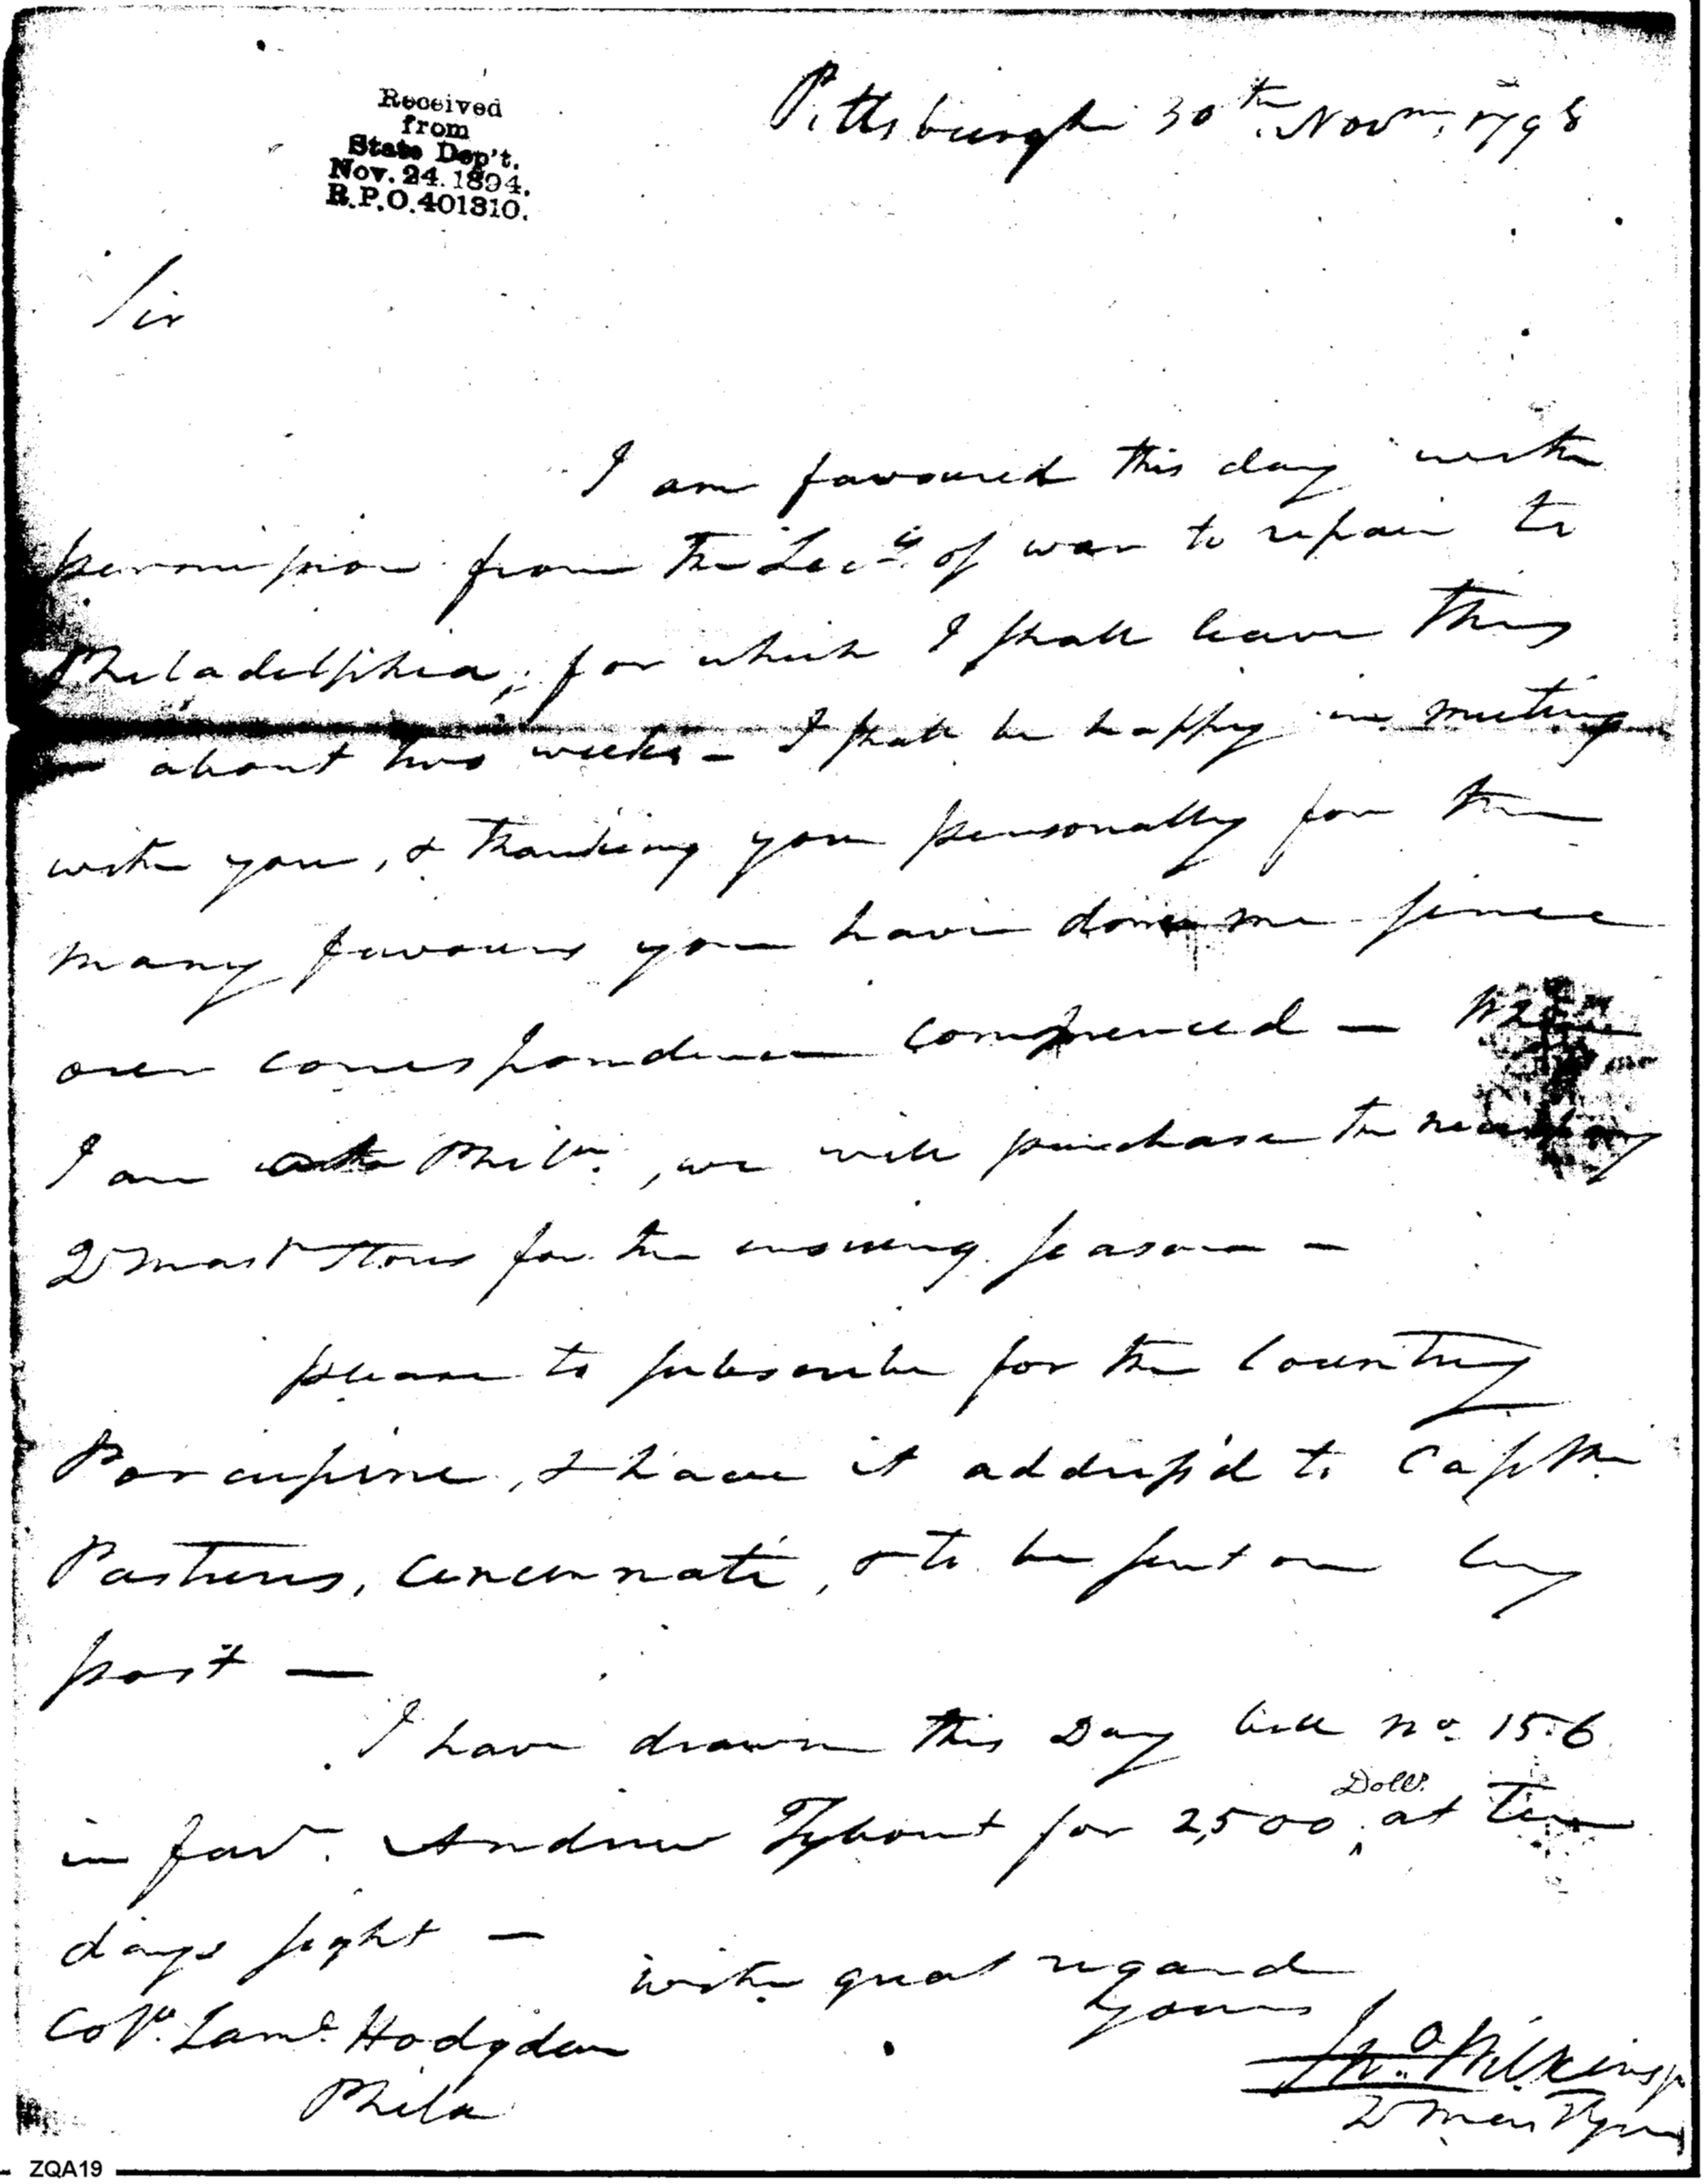 Received
from
State Dep't.
Nov. 24. 1894.
R.P.O. 401310.
Pittsburgh 30th Novm. 1798
Sir
I am favoured this day with
permission from the Secy. of war to repair to
Philadelphia, for which I shall leave this
about two weeks - I shall be happy in meeting
with you, & thanking you personally for the
many favours you have done me since
our correspondence commenced — When
I am at Phila., we will purchase the necessary
Qr mastr Stores for the ensuing season -
please to subscribe for the Country
Porcupine, & have it address'd to Capt
Pasteurs, Cincinnati, & to be sent on by
post —
I have drawn this Day bill no. 156
in favr. Andrew Tybout for 2,500 Dolls. at Ten
days sight —
with great regard
yours
Jno. Wilkins jr
Colo. Saml. Hodgdon
Phila
ZQA19